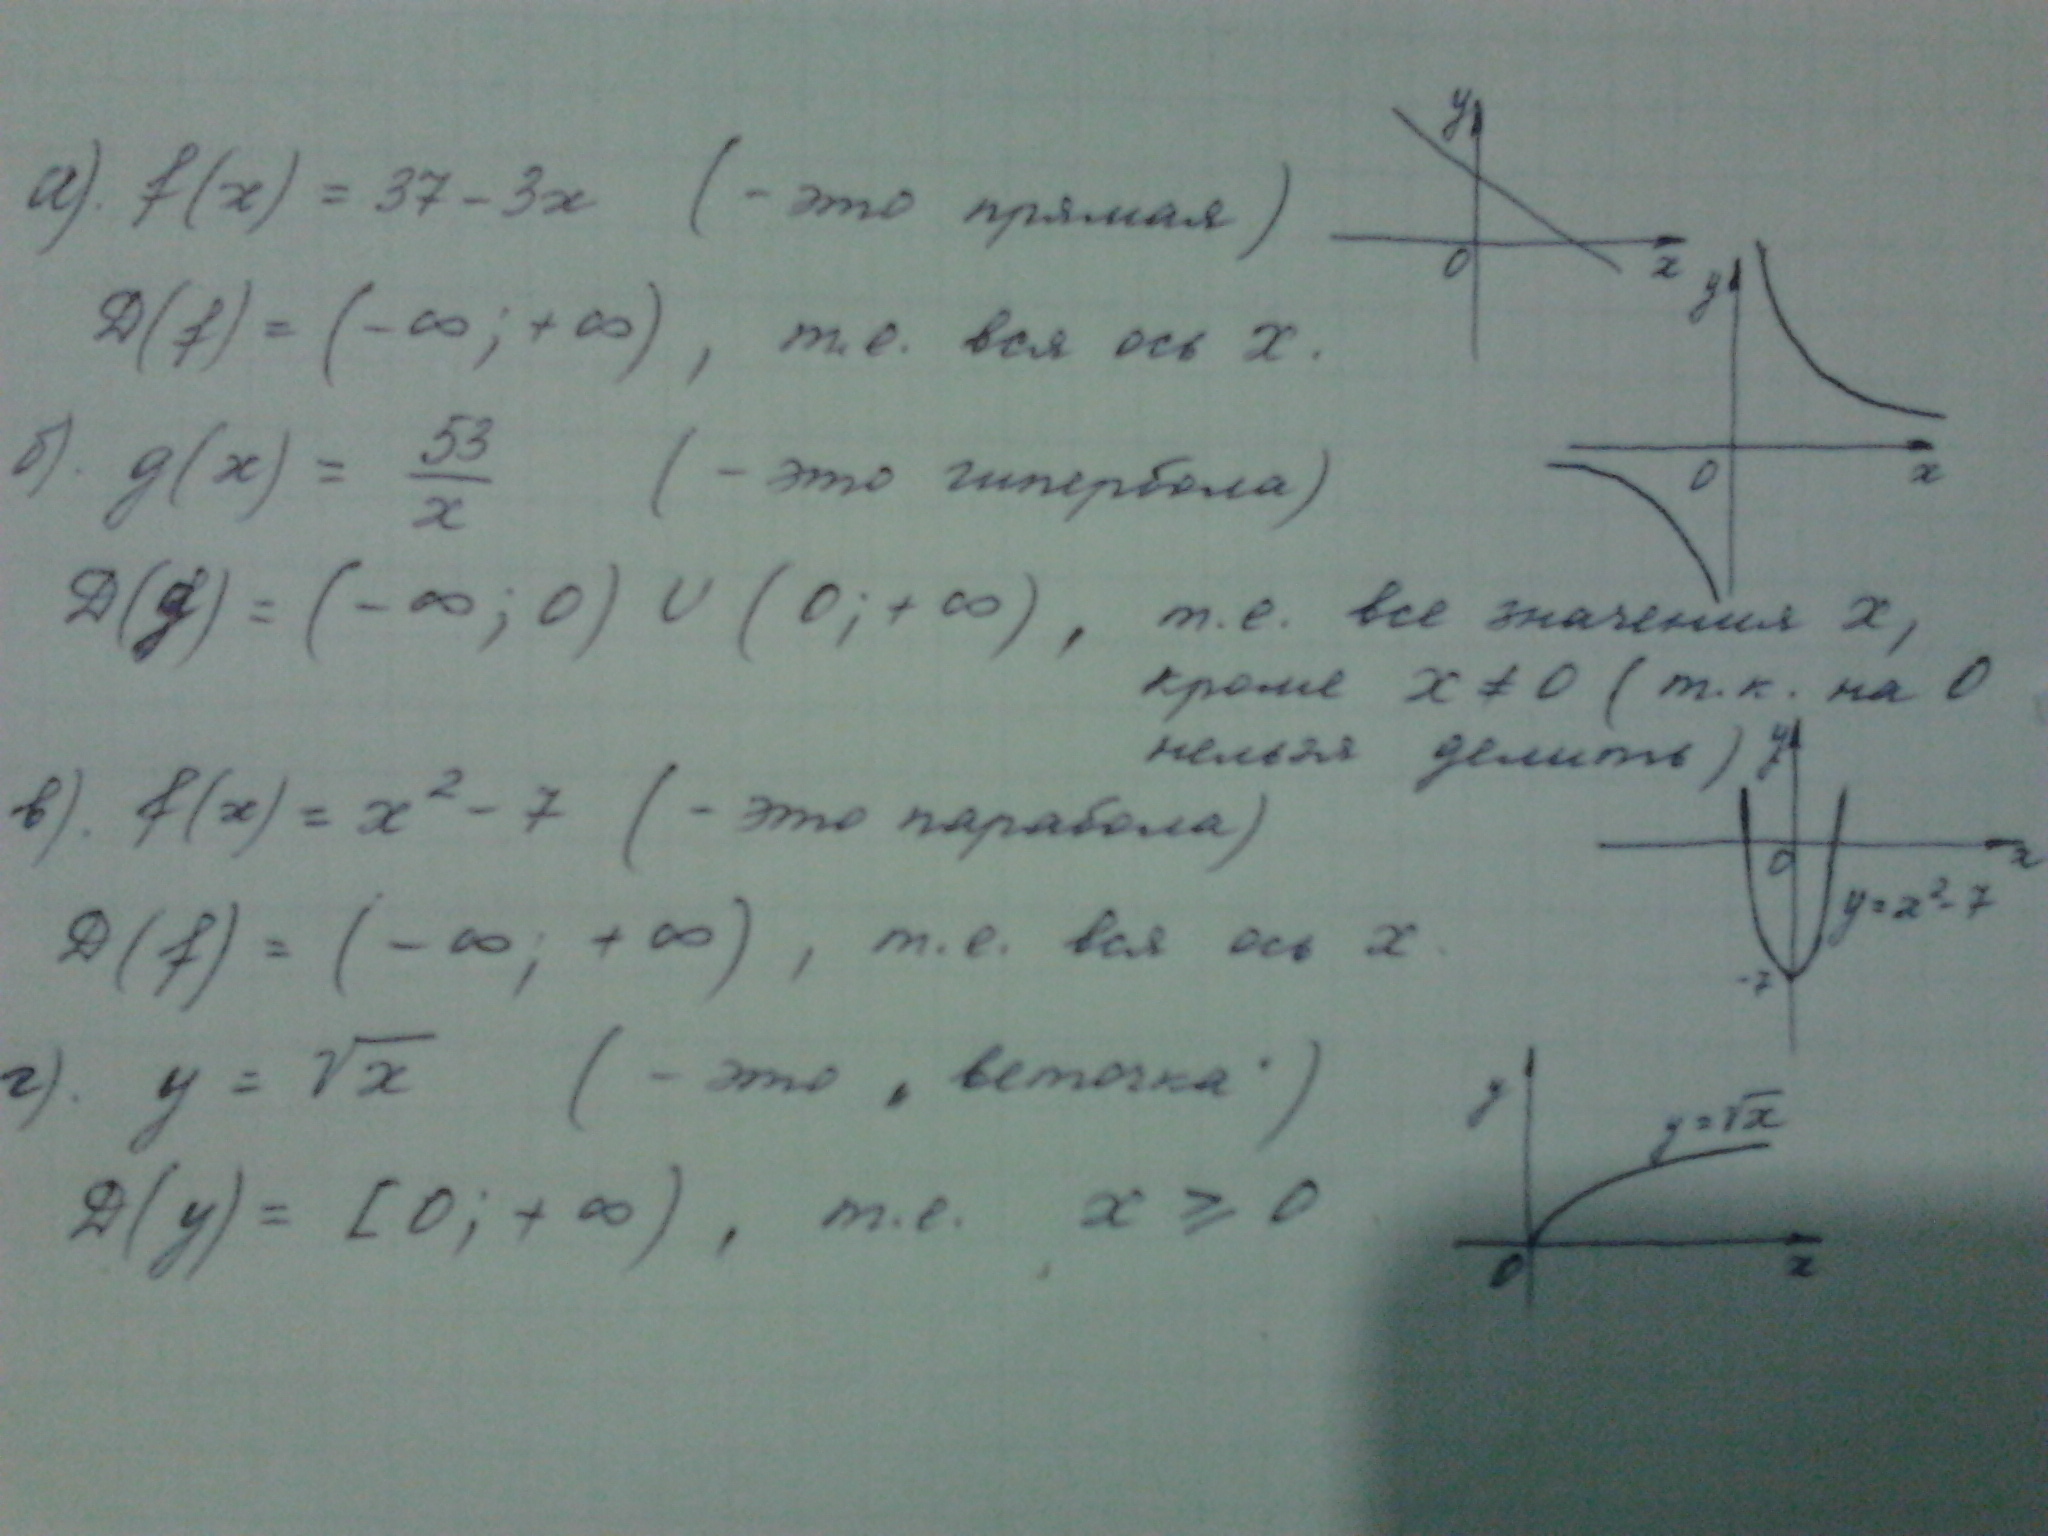 а). f(x) = 37 - 3x ( - это прямая )
y
0
x
D(f) = (-∞; +∞), т.е. вся ось x.
y
0
x
б). g(x) = 53/x ( - это гипербола)
D(g) = (-∞; 0) ∪ (0; +∞), т.е. все значения x,
кроме x ≠ 0 (т.к. на 0
нельзя делить)
в). f(x) = x² - 7 ( - это парабола)
y
0
x
y = x² - 7
-7
D(f) = (-∞; +∞), т.е. вся ось x.
г). y = √x ( - это „веточка“ )
y
y = √x
0
x
D(y) = [0; +∞), т.е. x ≥ 0